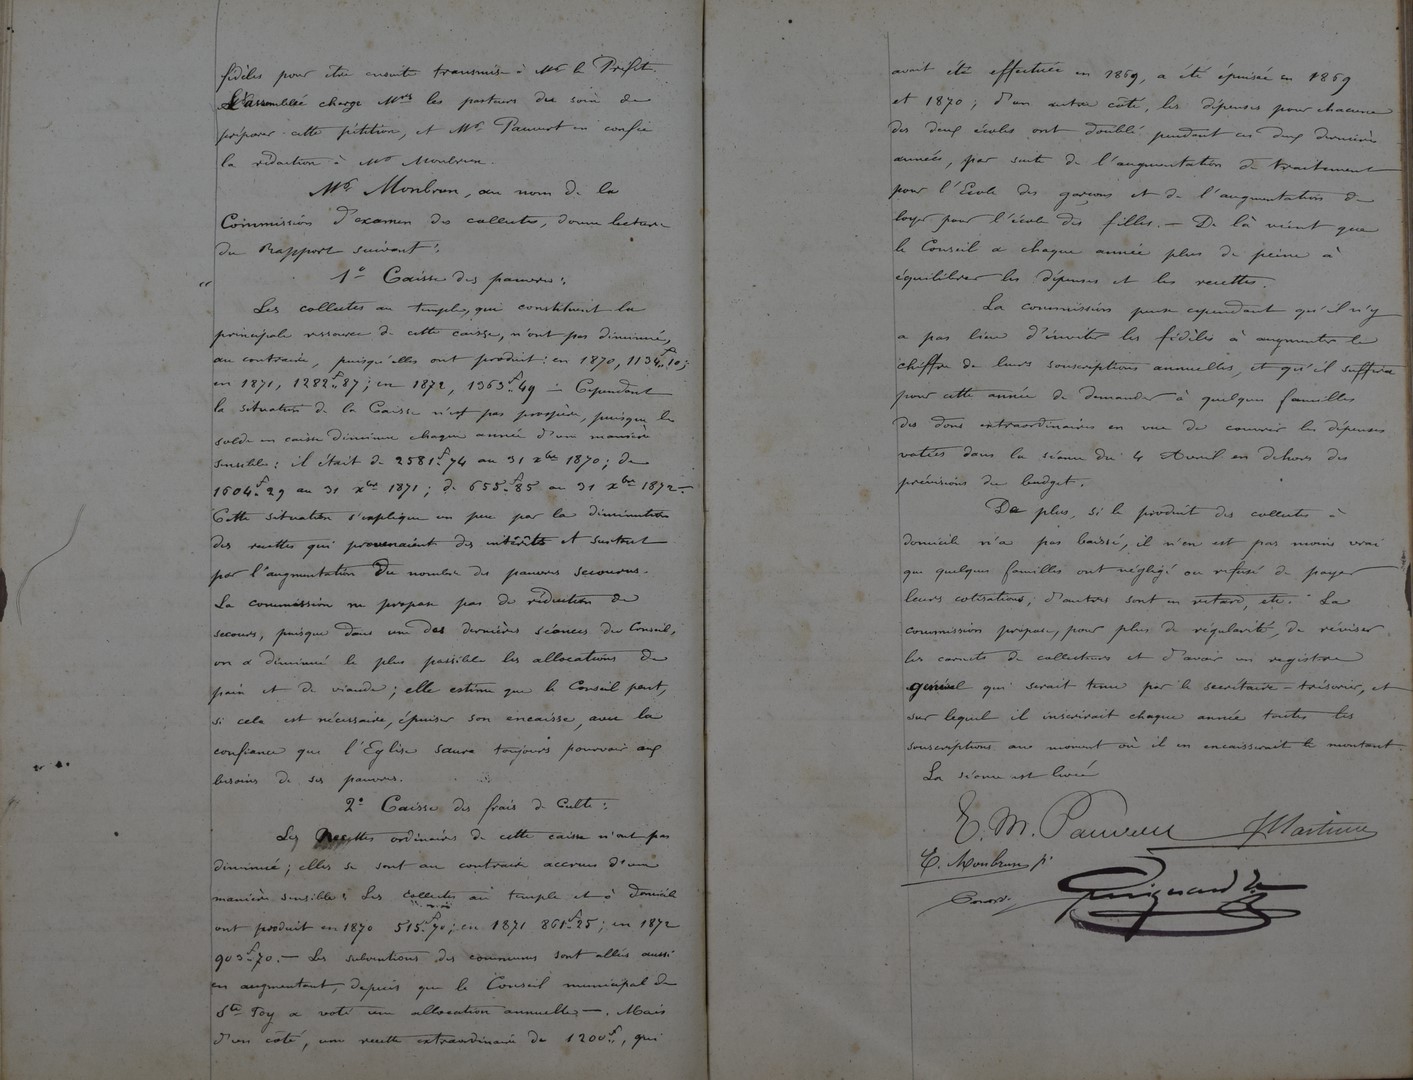 fidèles pour être ensuite transmise à Mr le Préfet.
L'assemblée charge Mrs les pasteurs du soin de
préparer cette pétition, et Mr Pauvert en confie
la rédaction à Mr Monbrun.
Mr Monbrun, au nom de la
Commission d'examen des collectes, donne lecture
du Rapport suivant :
1° Caisse des pauvres :
Les collectes au temple, qui constituent la
principale ressource de cette caisse, n'ont pas diminué,
au contraire, puisqu'elles ont produit : en 1870, 1134f,10;
en 1871, 1282f,87; en 1872, 1363f,49. — Cependant
la situation de la Caisse n'est pas prospère, puisque le
solde en caisse diminue chaque année d'une manière
sensible : il était de 2581f,74 au 31 xbre 1870; de
1604f,29 au 31 xbre 1871; de 655f,85 au 31 xbre 1872. —
Cette situation s'explique un peu par la diminution
des recettes qui provenaient des intérêts et surtout
par l'augmentation du nombre des pauvres secourus.
La commission ne propose pas de réduction de
secours, puisque dans une des dernières séances du Conseil,
on a diminué le plus possible les allocations de
pain et de viande; elle estime que le Conseil peut,
si cela est nécessaire, épuiser son encaisse, avec la
confiance que l'Eglise saura toujours pourvoir aux
besoins de ses pauvres.
2° Caisse des frais de Culte :
Les Recettes ordinaires de cette caisse n'ont pas
diminué; elles se sont au contraire accrues d'une
manière sensible : Les collectes au temple et à domicile
ont produit en 1870 515f,70; en 1871 861f,25; en 1872
903f,70. — Les subventions des communes sont allées aussi
en augmentant, depuis que le Conseil municipal de
Ste Foy a voté une allocation annuelle —. Mais
d'un côté, une recette extraordinaire de 1200f, qui
avait été effectuée en 1869, a été épuisée en 1869
et 1870; d'un autre côté, les dépenses pour chacune
des deux écoles ont doublé pendant ces deux dernières
années, par suite de l'augmentation de traitement
pour l'Ecole des garçons et de l'augmentation de
loyer pour l'école des filles. — De là vient que
le Conseil a chaque année plus de peine à
équilibrer les dépenses et les recettes.
La commission pense cependant qu'il n'y
a pas lieu d'inviter les fidèles à augmenter le
chiffre de leurs souscriptions annuelles, et qu'il suffira
pour cette année de demander à quelques familles
des dons extraordinaires en vue de couvrir les dépenses
votées dans la séance du 4 Avril en dehors des
prévisions du budget.
De plus, si le produit des collectes à
domicile n'a pas baissé, il n'en est pas moins vrai
que quelques familles ont négligé ou refusé de payer
leurs cotisations; d'autres sont en retard, etc. La
commission propose, pour plus de régularité, de réviser
les carnets de collecteurs et d'avoir un registre
général qui serait tenu par le secrétaire-trésorier, et
sur lequel il inscrirait chaque année toutes les
souscriptions au moment où il en encaisserait le montant
La séance est levée
E. M. Pauvert
E. Monbrun p.